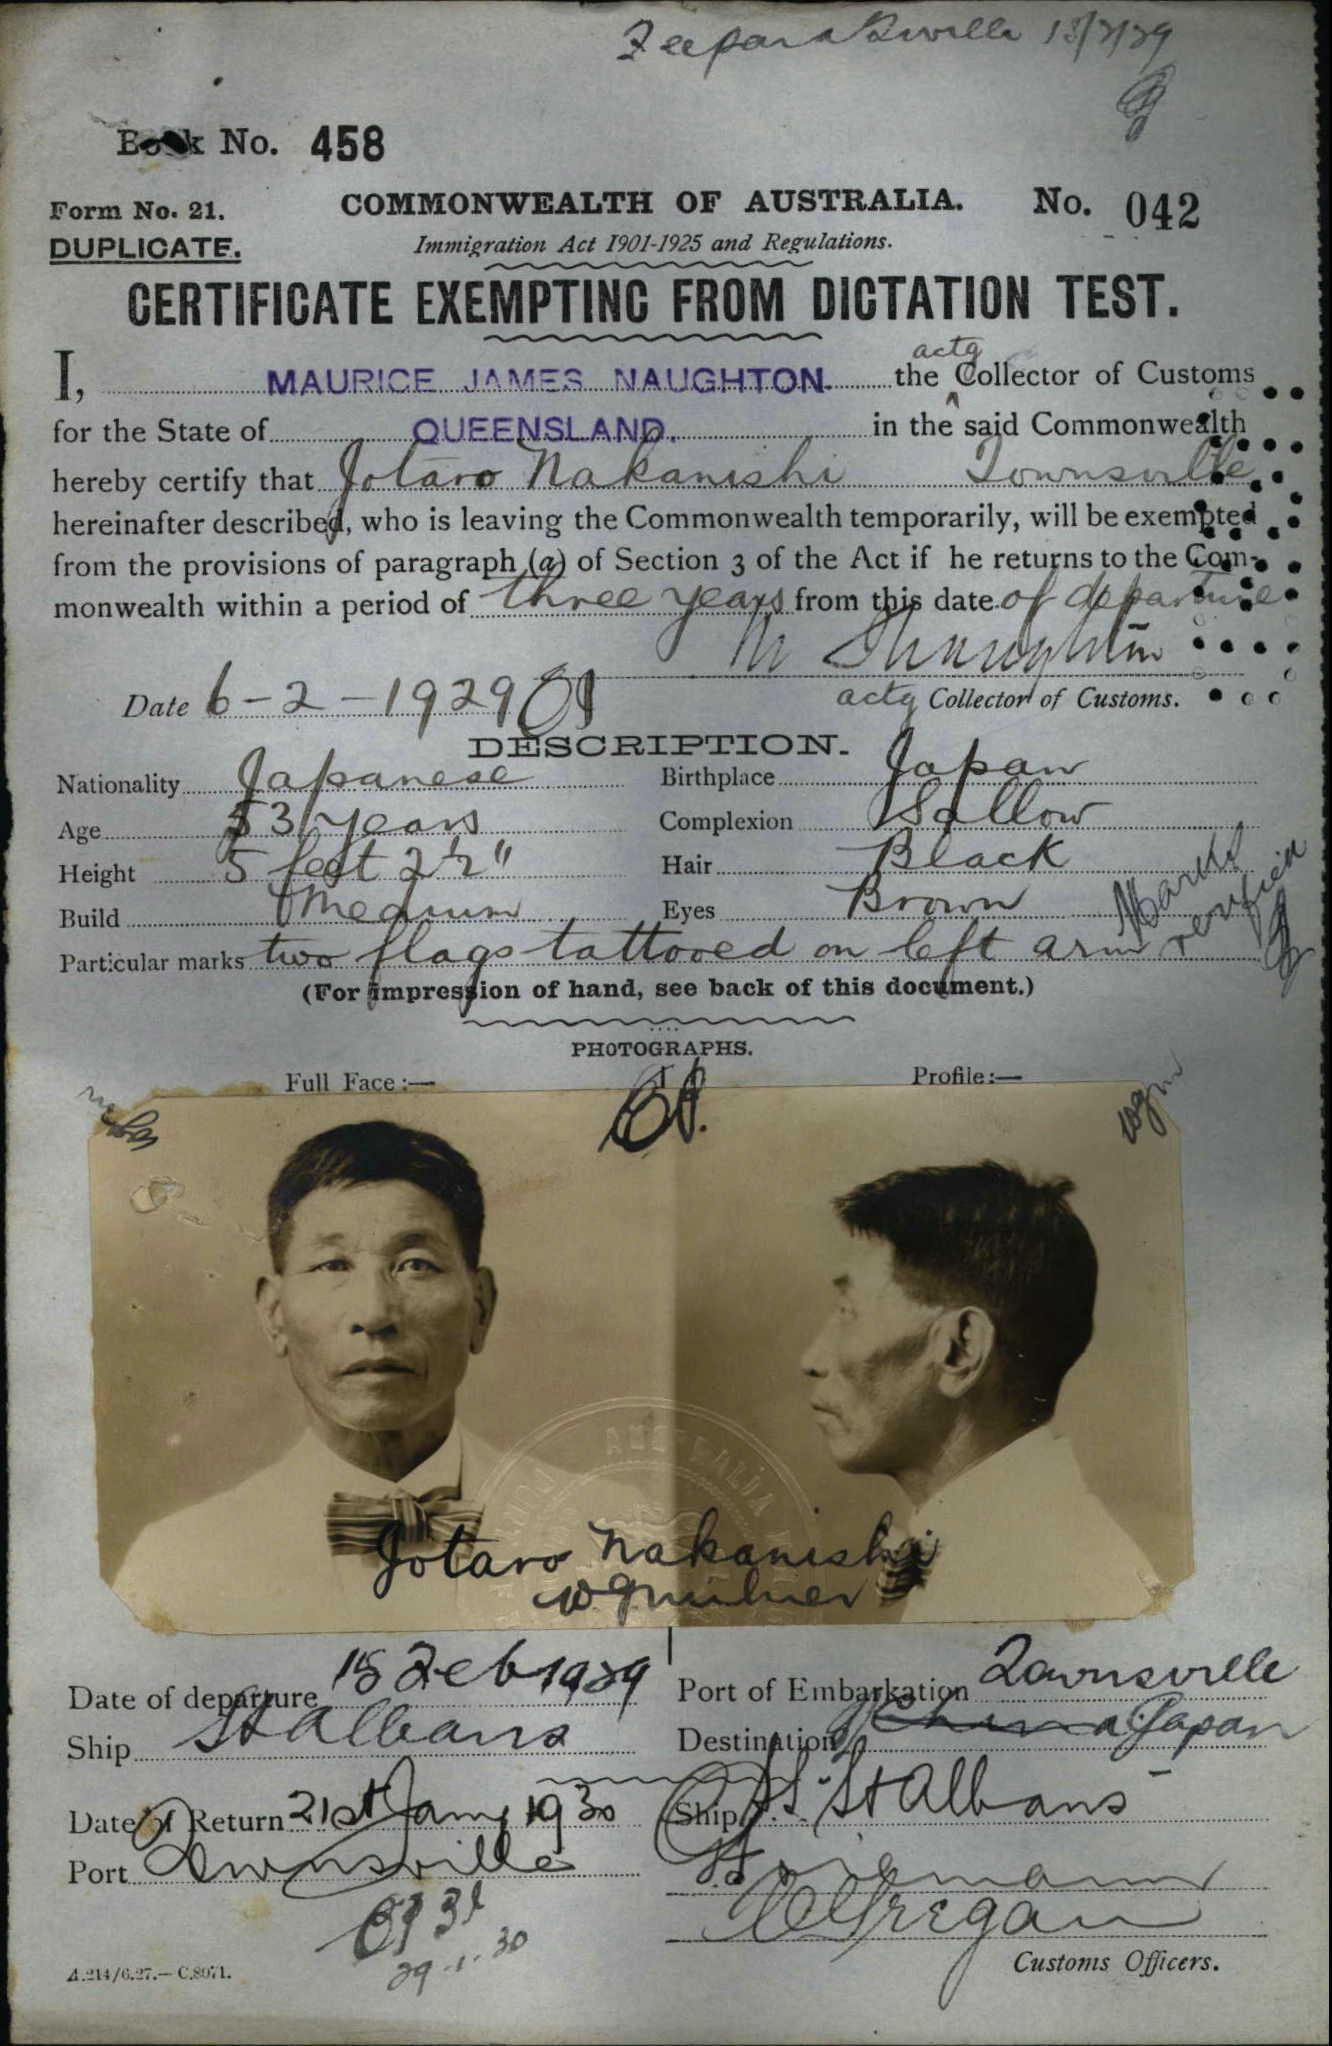 Fee paid T'ville 13/2/29
Book No. 458
Form No. 21. COMMONWEALTH OF AUSTRALIA. No. 042
DUPLICATE. Immigration Act 1901-1925 and Regulations.
CERTIFICATE EXEMPTING FROM DICTATION TEST.
I, MAURICE JAMES NAUGHTON. the actg Collector of Customs
for the State of QUEENSLAND. in the said Commonwealth
hereby certify that Jotaro Nakanishi Townsville
hereinafter described, who is leaving the Commonwealth temporarily, will be exempted
from the provisions of paragraph (a) of Section 3 of the Act if he returns to the Com-
monwealth within a period of three years from this date of departure
Date 6-2-1929 actg Collector of Customs.
DESCRIPTION.
Nationality Japanese Birthplace Japan
Age 53 years Complexion Sallow
Height 5 feet 2 1/2" Hair Black
Build Medium Eyes Brown
Marks verified
Particular marks two flags tattooed on left arm
(For impression of hand, see back of this document.)
PHOTOGRAPHS.
Full Face:— Profile:—
wgm
AUSTRALIA
Jotaro Nakanishi
WGMilner
Date of departure 15 Feb 1929 Port of Embarkation Townsville
Ship St Albans Destination China Japan
Date of Return 21st Jany 1930 Ship S.S. St Albans
Port Townsville
29.1.30
Customs Officers.
A.214/6.27.—C.8071.